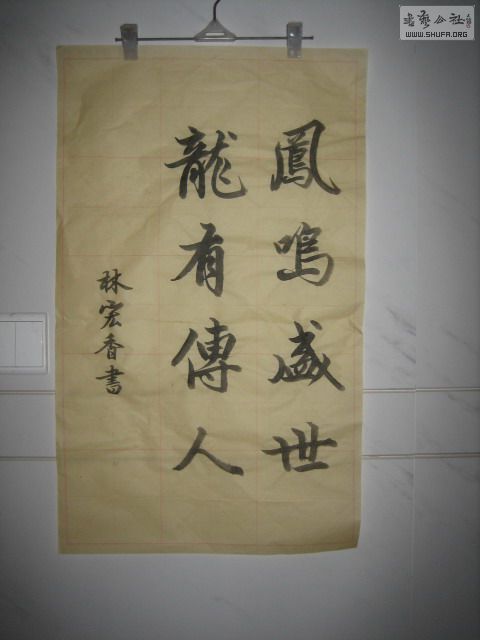 鳳鳴盛世
龍有傳人
林宏香書
書藝公社
WWW.SHUFA.ORG